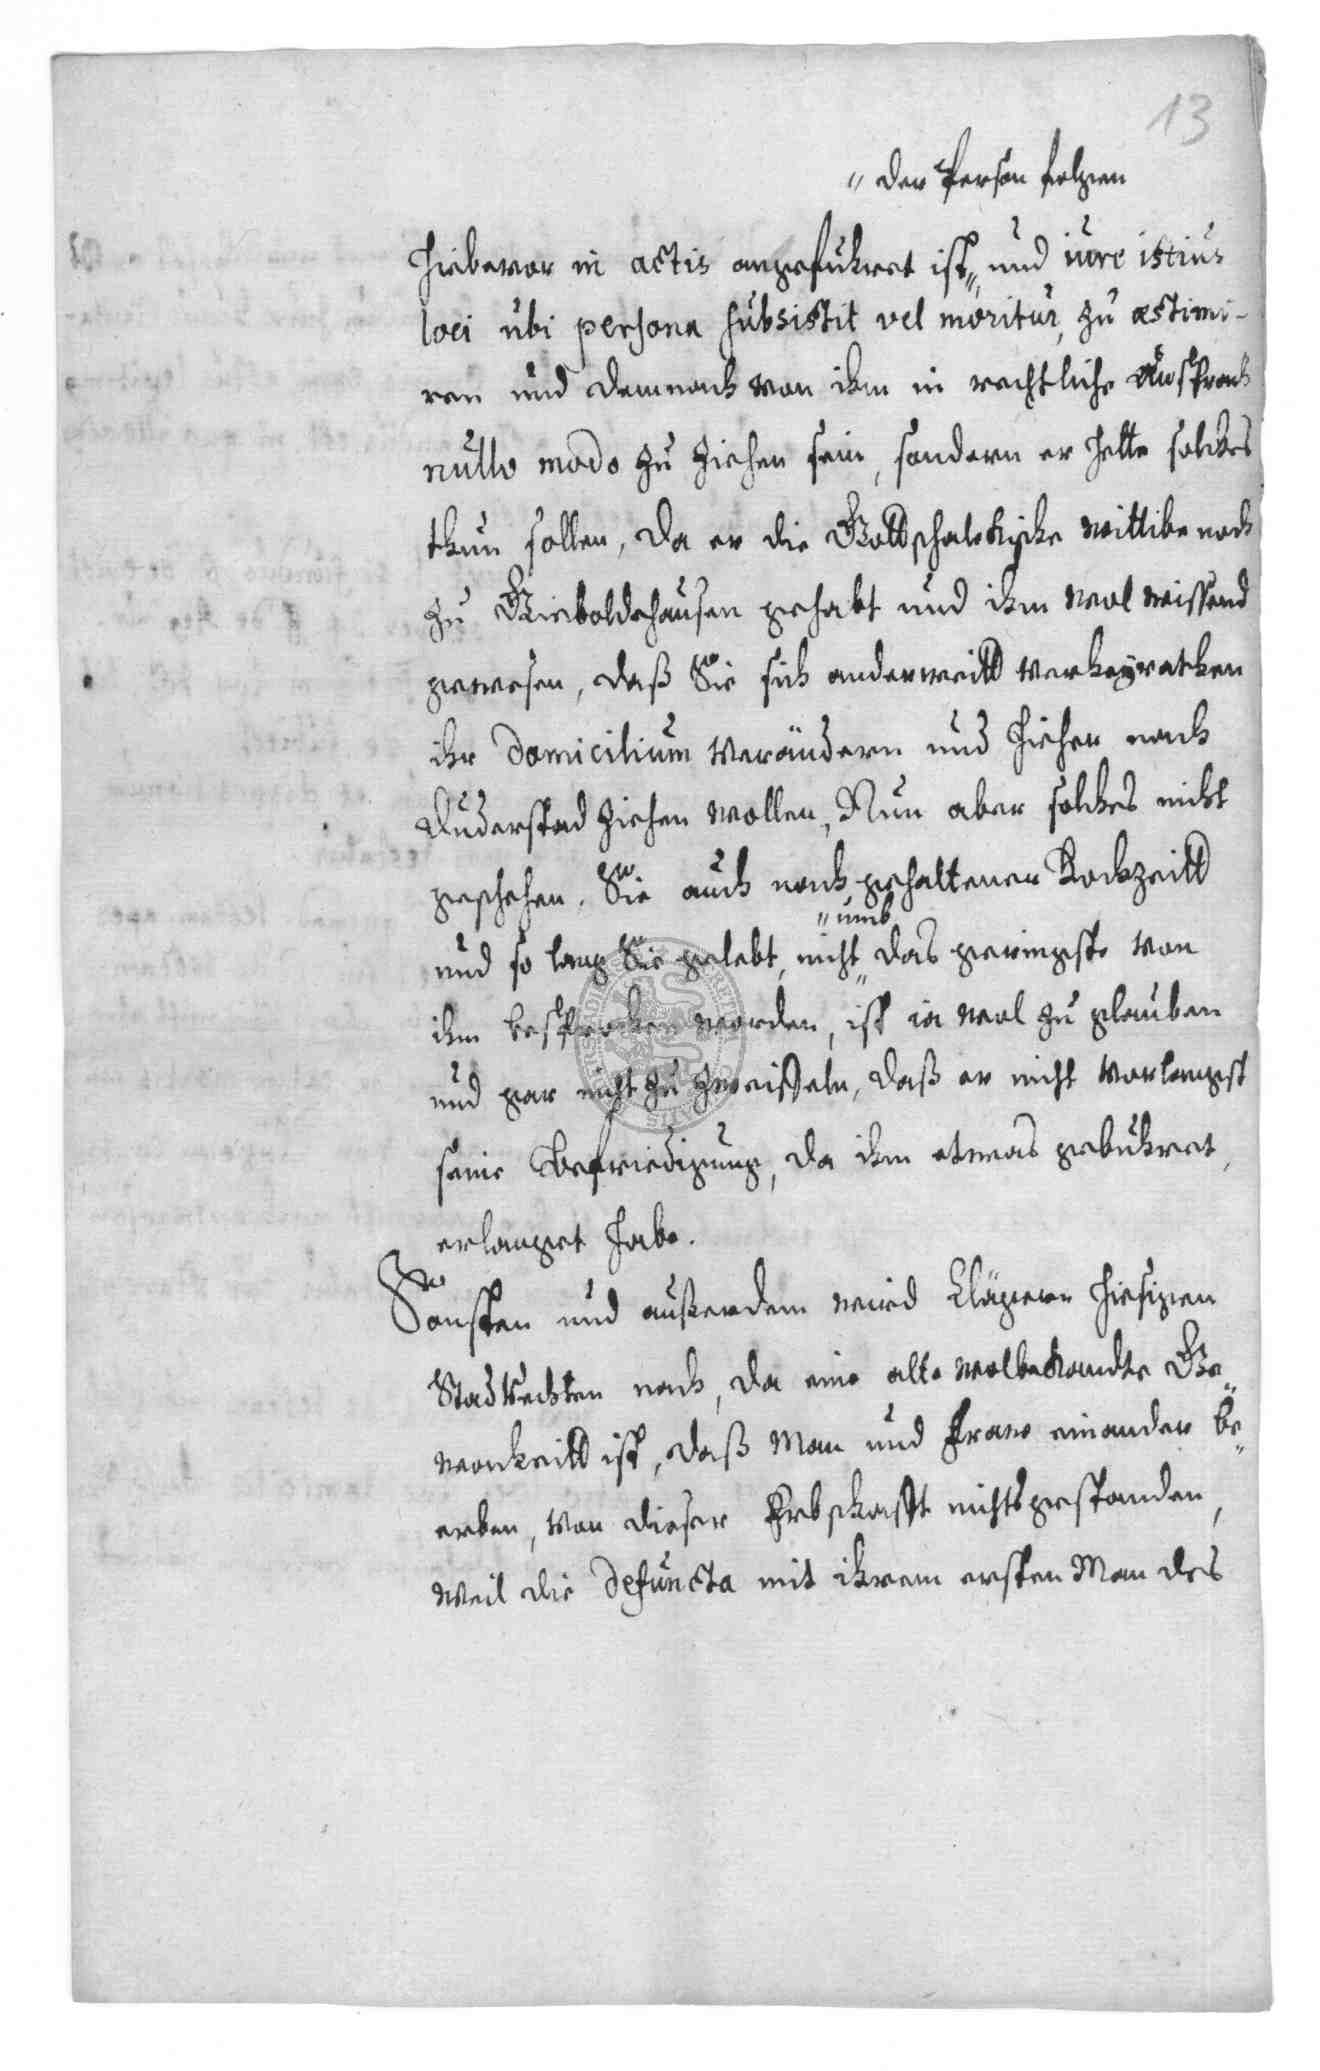 13
" der Person folgen
hiebevor in actis angefuhret ist " und iure istius
loci ubi persona subsistit vel moritur, zu æstimi-
ren und demnach von ihm in rechtliche Ansprach
nullo modo zu ziehen sein, sondern er hette solches
thun sollen, da er die Gottschalckische Wittibe noch
zu Gieboldehausen gehabt und ihm wol wissend
gewesen, daß Sie sich anderweitt verheyrathen
ihr Domicilium verändern und hieher nach
Duderstad ziehen wollen, Nun aber solches nicht
geschehen, Sie auch nach gehaltener Hochzeitt
" umb
und so lang Sie gelebt, nicht " das geringste von
ihm besprochen worden, ist ia wol zu glauben
und gar nicht zu zweiffeln, daß er nicht vorlangst
seine Befriedigung, da ihm etwas gebuhret,
erlanget habe.
Sonsten und außerdem wird Klägern hiesigen
Stadtrechten nach, da eine alte wolbekandte Ge"
wonheitt ist, daß Man und Fraw einander be"
erben, von dieser Erbschafft nichts gestanden,
weil die Defuncta mit ihrem ersten Man des